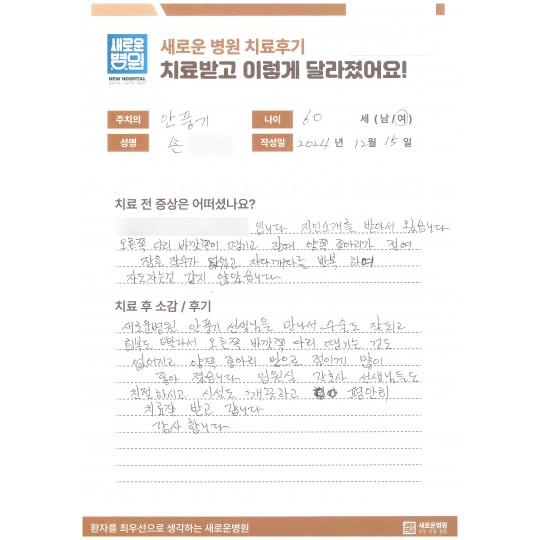 새로운
병원
NEW HOSPITAL
새로운 병원 치료후기
치료받고 이렇게 달라졌어요!
주치의 안풍기 나이 60 세 (남/여)
성명 손 작성일 2024 년 12 월 15 일
치료 전 증상은 어떠셨나요?
입니다 지인소개를 받아서 왔습니다
오른쪽 다리 바깥쪽이 땡기고 잠잘때 양쪽 종아리가 저려
잠을 잘수가 없었고 자다깨다를 반복 하여
자도자는것 같지 않았습니다
치료 후 소감 / 후기
새로운병원 안풍기 선생님을 만나서 수술도 잘되고
회복도 빨라서 오른쪽 바깥쪽 다리 땡기는 것도
없어지고 양쪽 종아리 많이
좋아 졌습니다 입원실 간호사 선생님들도
친절하시고 시설도 깨끗하고 편안히
치료잘 받고 갑니다
감사 합니다
환자를 최우선으로 생각하는 새로운병원
새로운병원